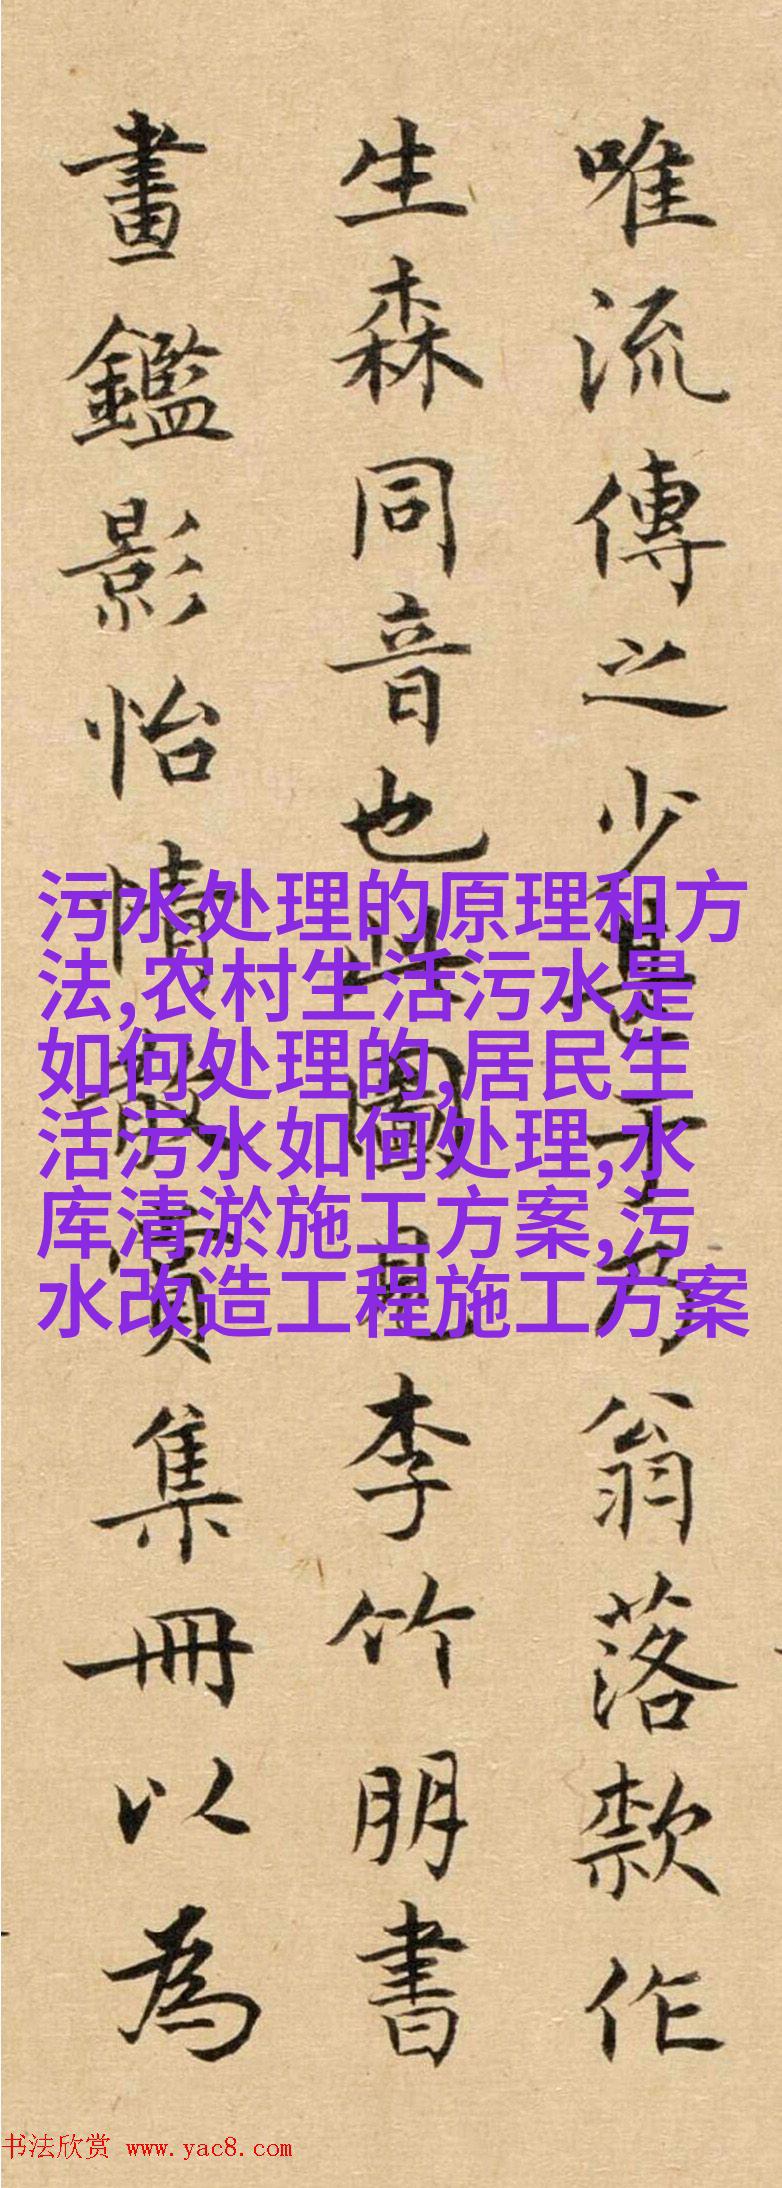 唯流傳之少甚于乃翁落款作
生森同音也此圖見李竹朋書
畫鑑影怡情散賞集冊以為
污水处理的原理和方
法,农村生活污水是
如何处理的,居民生
活污水如何处理,水
库清淤施工方案,污
水改造工程施工方案
书法欣赏 www.yac8.com